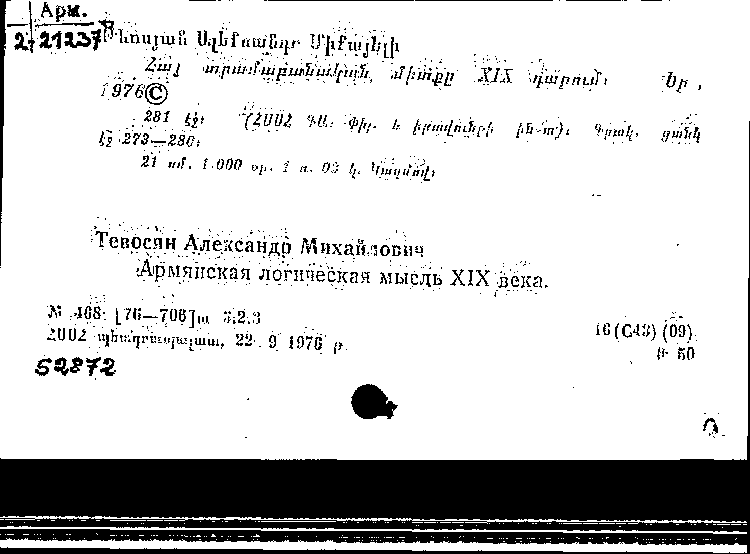 Арм.
2-21237
Թևոսյան Ալեքսանդր Միքայելի
Հայ տրամաբանական միտքը XIX դարում։ Եր.,
1976 ©
281 էջ։ (ՀՍՍՀ ԳԱ։ Փիլ. և իրավունքի ին-տ)։ Գրակ. ցանկ
էջ 273—280։
21 սմ. 1.000 օր. 1 ռ. 03 կ. Կազմով։
Тевосян Александр Михайлович
Армянская логическая мысль XIX века.
№ 468 [76—706] 3.2.3
16 (C43) (09)
ՀՍՍՀ պետգրապալատ, 22 9 1976 թ.
թ 50
52872